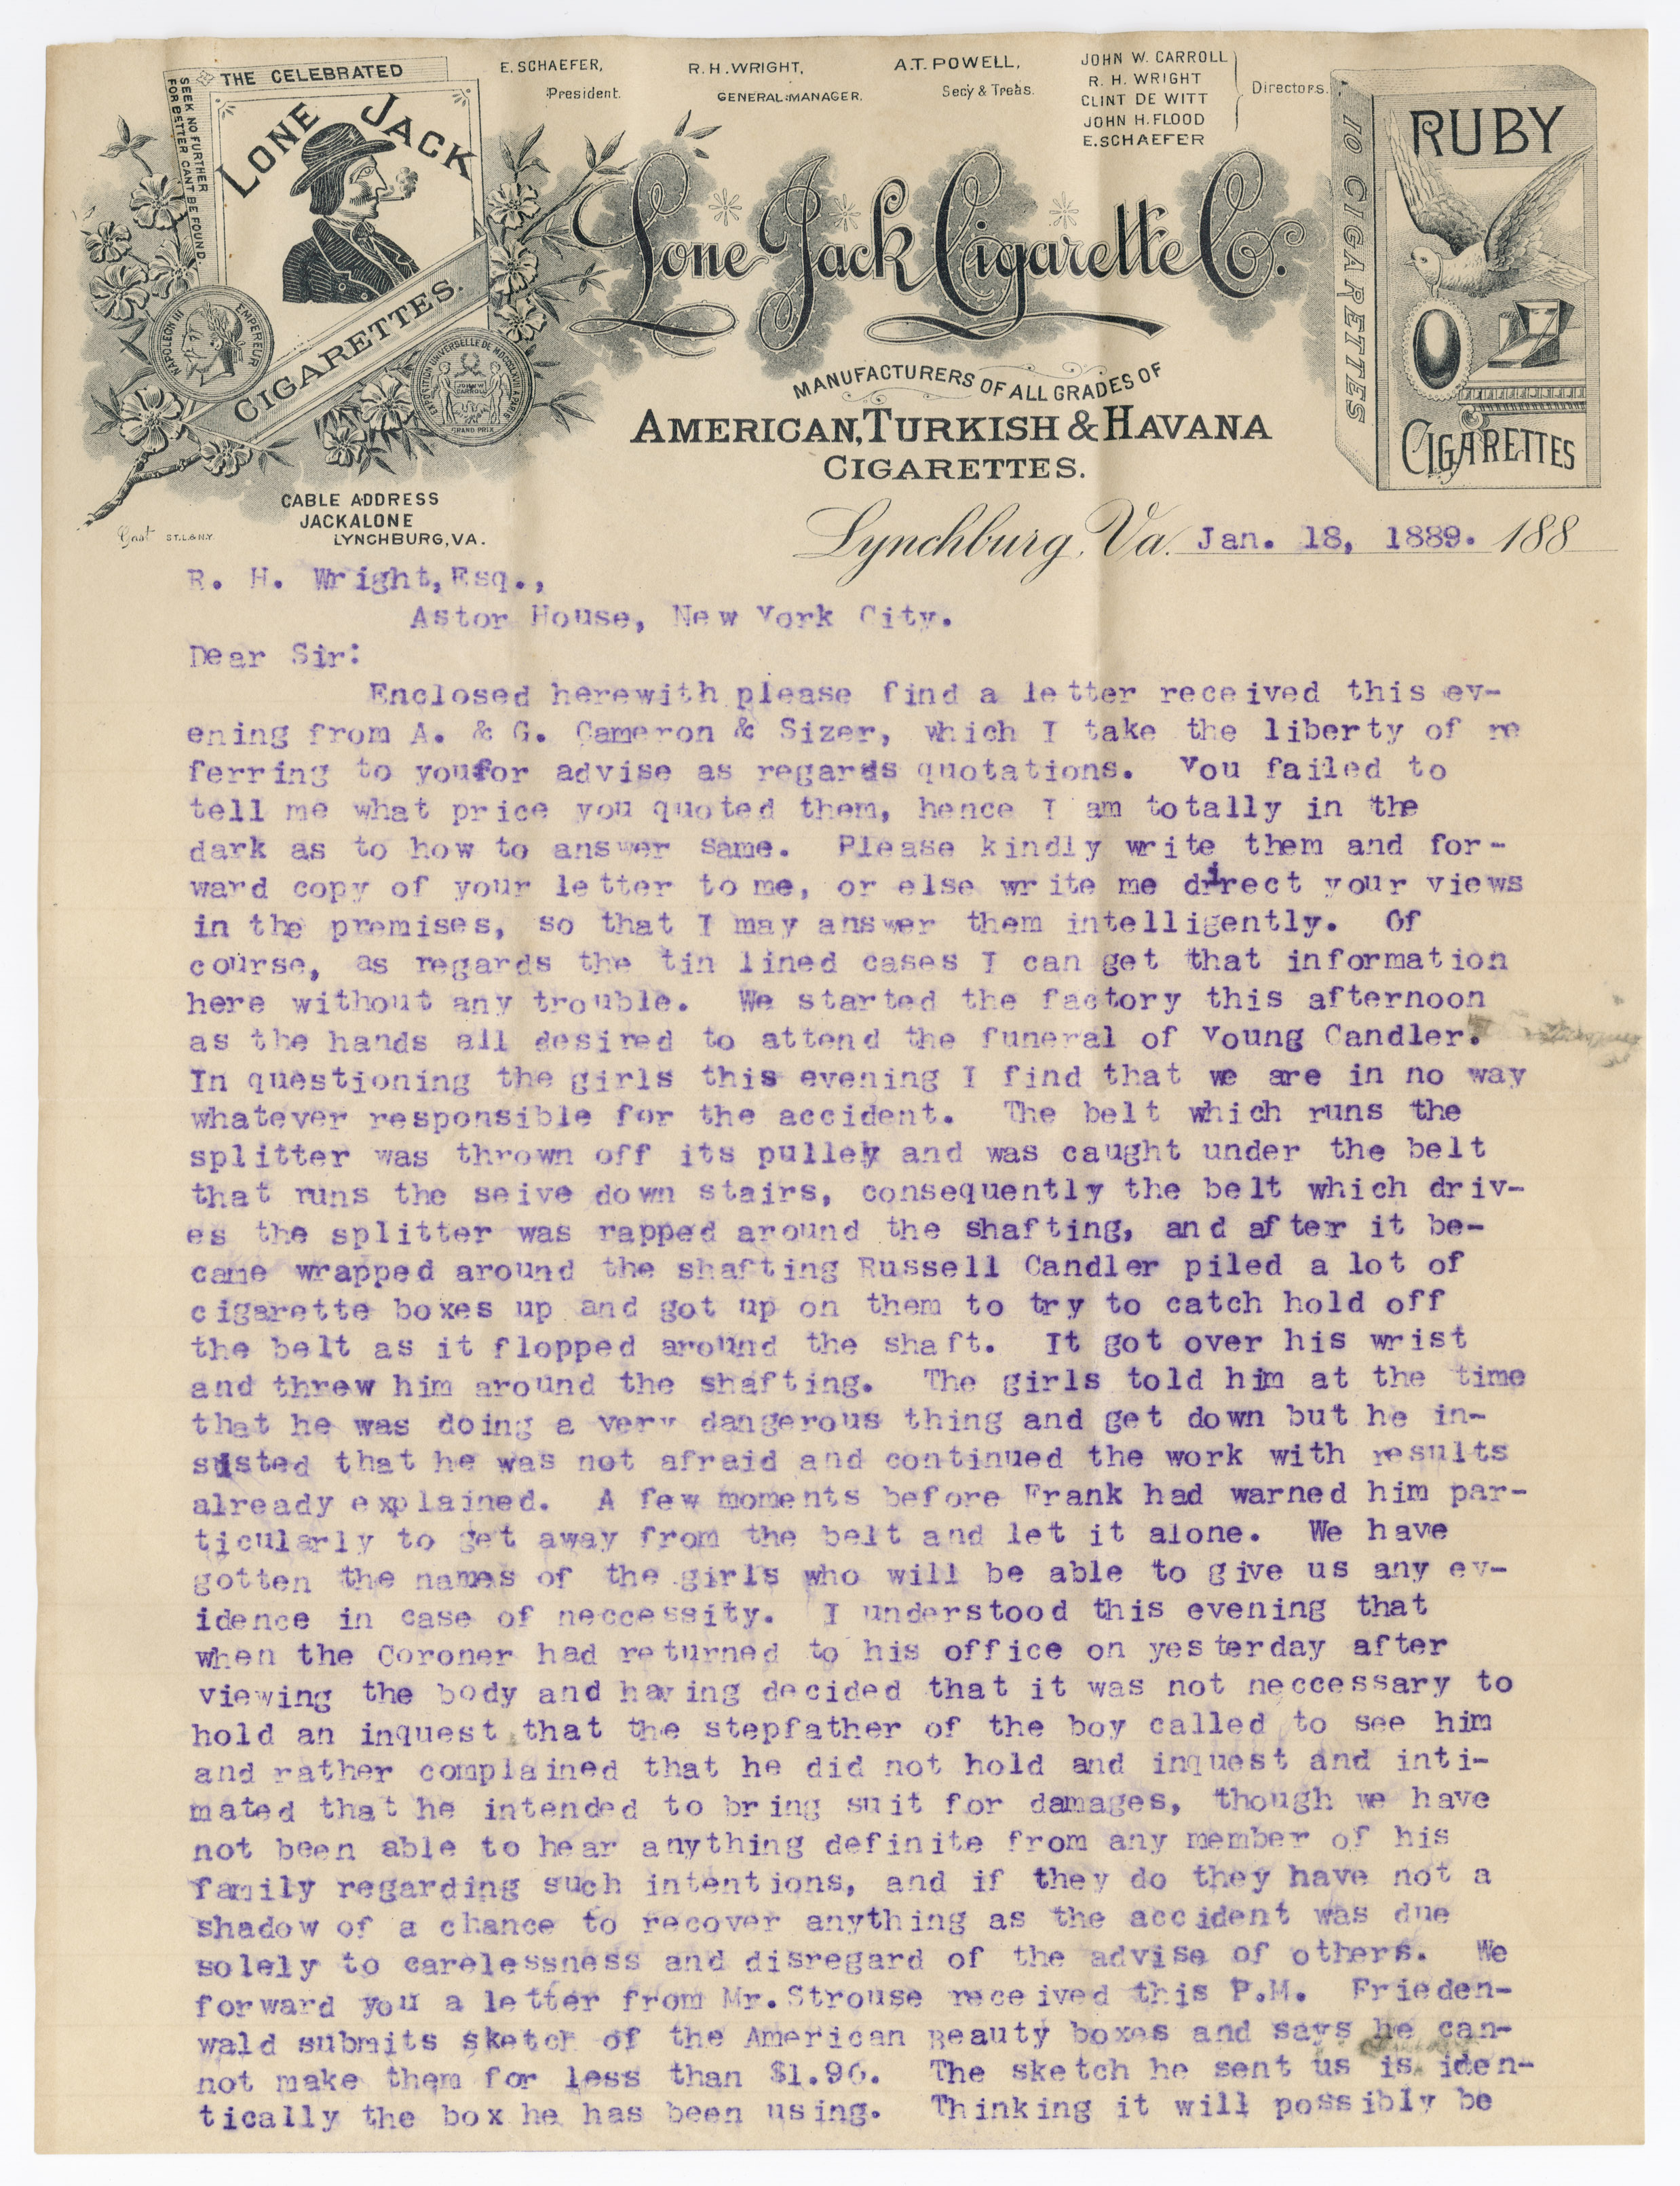 THE CELEBRATED
SEEK NO FURTHER
FOR BETTER CANT BE FOUND.
LONE JACK
CIGARETTES.
NAPOLEON III EMPEREUR
EXPOSITION UNIVERSELLE DE MDCCCLXVII A PARIS
JOHN W
CARROLL
GRAND PRIX
CABLE ADDRESS
JACKALONE
LYNCHBURG, VA.
Gast ST.L.& N.Y.
E. SCHAEFER,
President.
R. H. WRIGHT,
GENERAL MANAGER.
A.T. POWELL,
Secy & Treas.
JOHN W. CARROLL
R. H. WRIGHT
CLINT DE WITT
JOHN H. FLOOD
E. SCHAEFER
Directors.
Lone Jack Cigarette Co.
MANUFACTURERS OF ALL GRADES OF
AMERICAN, TURKISH & HAVANA
CIGARETTES.
10 CIGARETTES
RUBY
CIGARETTES
Lynchburg, Va. Jan. 18, 1889. 188
R. H. Wright, Esq.,
Astor House, New York City.
Dear Sir:
Enclosed herewith please find a letter received this ev-
ening from A. & G. Cameron & Sizer, which I take the liberty of re
ferring to youfor advise as regards quotations. You failed to
tell me what price you quoted them, hence I am totally in the
dark as to how to answer same. Please kindly write them and for-
ward copy of your letter to me, or else write me direct your views
in the premises, so that I may answer them intelligently. Of
course, as regards the tin lined cases I can get that information
here without any trouble. We started the factory this afternoon
as the hands all desired to attend the funeral of Young Candler.
In questioning the girls this evening I find that we are in no way
whatever responsible for the accident. The belt which runs the
splitter was thrown off its pulley and was caught under the belt
that runs the seive down stairs, consequently the belt which driv-
es the splitter was rapped around the shafting, and after it be-
came wrapped around the shafting Russell Candler piled a lot of
cigarette boxes up and got up on them to try to catch hold off
the belt as it flopped around the shaft. It got over his wrist
and threw him around the shafting. The girls told him at the time
that he was doing a very dangerous thing and get down but he in-
sisted that he was not afraid and continued the work with results
already explained. A few moments before Frank had warned him par-
ticularly to get away from the belt and let it alone. We have
gotten the names of the girls who will be able to give us any ev-
idence in case of neccessity. I understood this evening that
when the Coroner had returned to his office on yesterday after
viewing the body and having decided that it was not neccessary to
hold an inquest that the stepfather of the boy called to see him
and rather complained that he did not hold and inquest and inti-
mated that he intended to bring suit for damages, though we have
not been able to hear anything definite from any member of his
family regarding such intentions, and if they do they have not a
shadow of a chance to recover anything as the accident was due
solely to carelessness and disregard of the advise of others. We
forward you a letter from Mr. Strouse received this P.M. Frieden-
wald submits sketch of the American Beauty boxes and says he can-
not make them for less than $1.90. The sketch he sent us is iden-
tically the box he has been using. Thinking it will possibly be